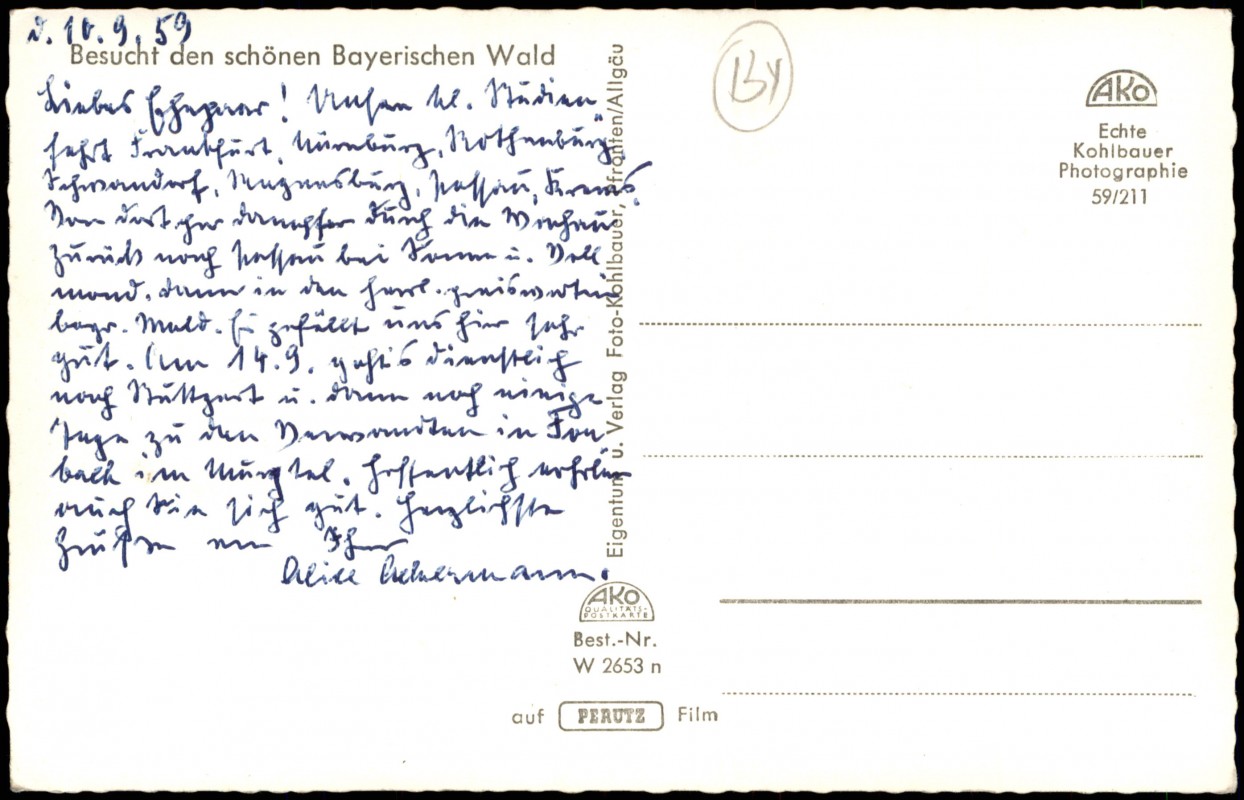 d. 10.9.59
Besucht den schönen Bayerischen Wald
Liebes Ehepaar! Unsere kl. Studien-
fahrt Frankfurt, Nürnburg, Rothenburg,
Schwandorf, Regensburg, Passau, Krems.
Von dort per Dampfer durch die Wachau
zurück nach Passau bei Sonne u. Voll
mond, dann in den herrl. preiswerten
bayr. Wald. Es gefällt uns hier sehr
gut. Am 14.9. geht's dienstlich
nach Stuttgart u. dann noch einige
Tage zu den Verwandten in
im Murgtal. Hoffentlich erholen
auch Sie sich gut. Herzlichste
Grüße von Ihrer
Alice Ackermann.
Eigentum u. Verlag Foto-Kohlbauer, Pfronten/Allgäu
AKO
QUALITÄTS-
POSTKARTE
Best.-Nr.
W 2653 n
auf PERUTZ Film
BY
AKO
Echte
Kohlbauer
Photographie
59/211